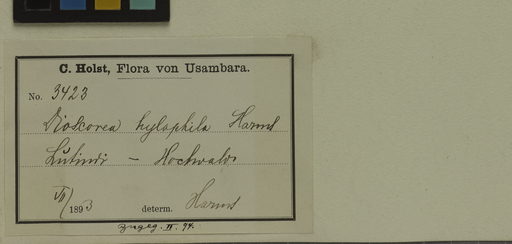 C. Holst, Flora von Usambara.
No. 3423
Dioscorea hylophila Harms
Lutindi – Hochwald
VII/1893 determ. Harms
zugeg. II. 94.